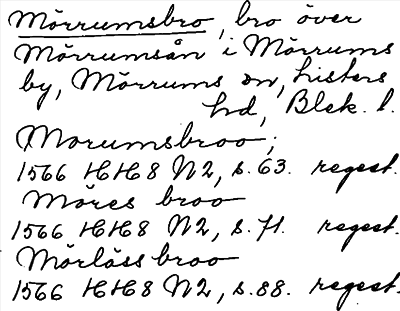 Mörrumsbro, bro över
Mörrumsån i Mörrums
by, Mörrums sn, Listers
hd, Blek. l.
Morumsbroo;
1566 HH8 N2, s. 63. regest.
Möres broo
1566 HH8 N2, s. 71. regest.
Mörlössbroo
1566 HH8 N2, s. 88. regest.